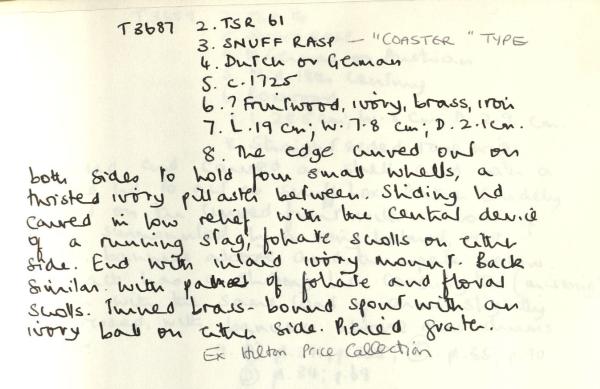 T3687 2. TSR 61
3. SNUFF RASP - "COASTER" TYPE
4. Dutch or German
5. c. 1725
6. ? Fruitwood, ivory, brass, iron
7. L. 19 cm; W. 7.8 cm; D. 2.1cm.
8. The edge carved out on
both sides to hold four small wheels, a
twisted ivory pilaster between. Sliding lid
carved in low relief with the central device
of a running stag, foliate scrolls on either
side. End with inlaid ivory mount. Back
similar. with of foliate and floral
scrolls. Turned brass-bound spout with an
ivory ball on either side. Pierced grater.
Ex Hilton Price Collection